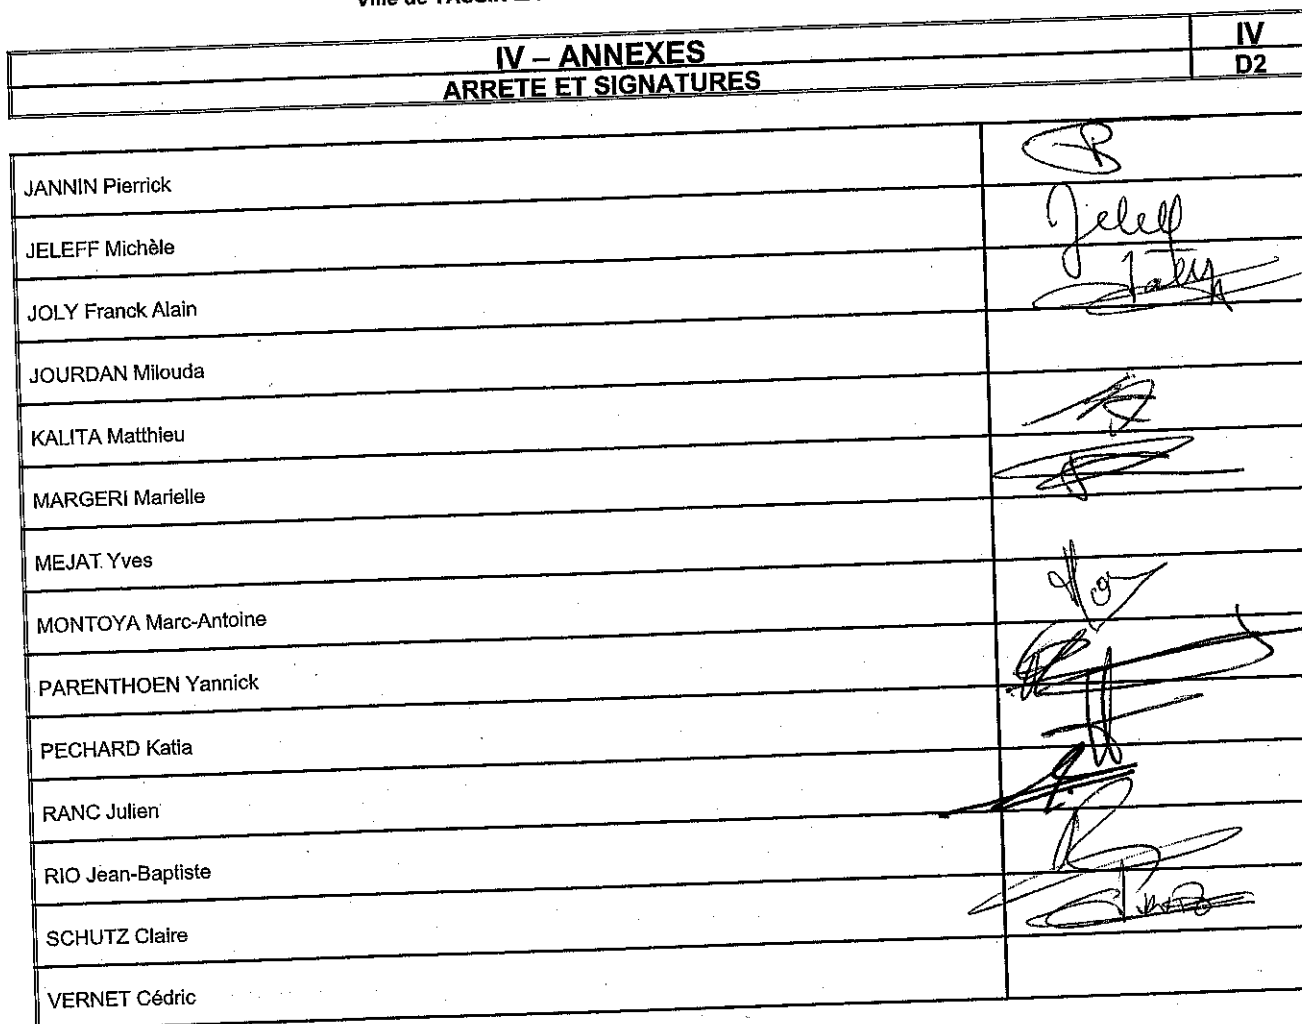 Ville de TASSIN
IV – ANNEXES
IV
ARRETE ET SIGNATURES
D2
JANNIN Pierrick
JELEFF Michèle
Jeleff
JOLY Franck Alain
Joly
JOURDAN Milouda
KALITA Matthieu
MARGERI Marielle
MEJAT Yves
MONTOYA Marc-Antoine
PARENTHOEN Yannick
PECHARD Katia
RANC Julien
RIO Jean-Baptiste
SCHUTZ Claire
VERNET Cédric